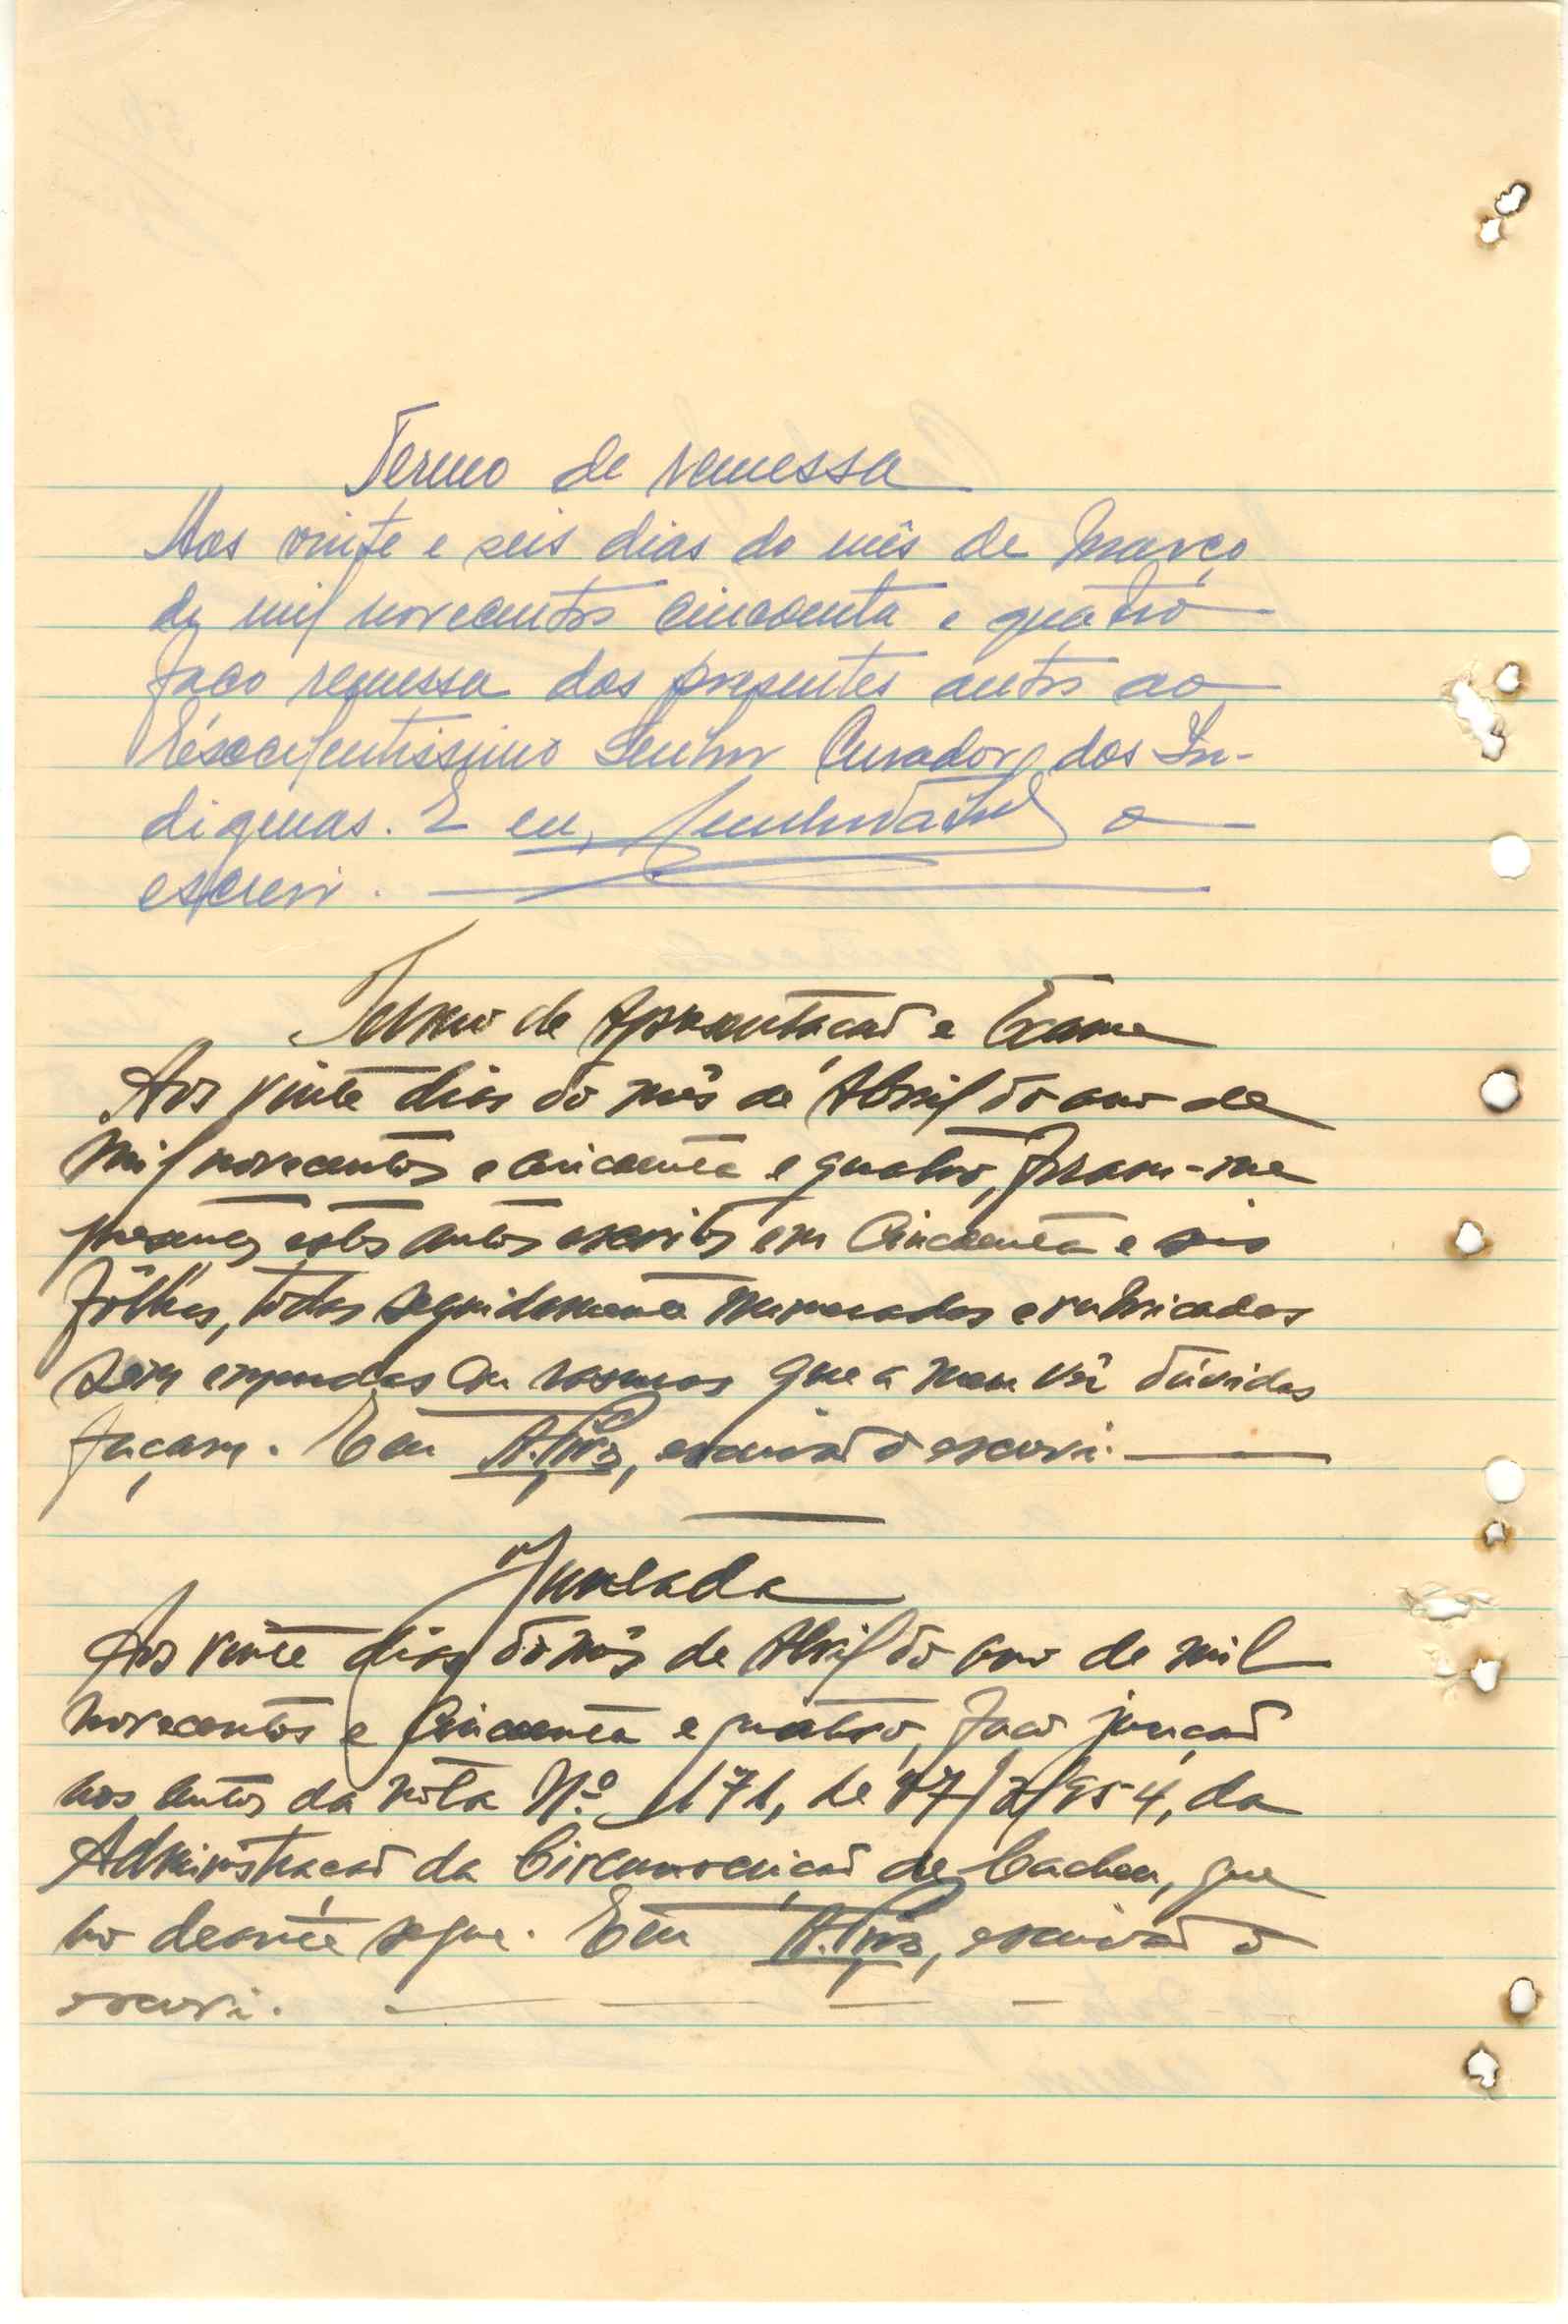 Termo de remessa
Aos vinte e seis dias do mês de Março
de mil novecentos cincoenta e quatro
faço remessa dos presentes autos ao
Excelentissimo Senhor Curador dos In-
digenas. E eu, o
escrevi.
Termo de Apresentação e Exame
Aos vinte dias do mês de Abril do ano de
mil novecentos e cincoenta e quatro, foram-me
presentes estes autos escritos em cincoenta e seis
fôlhas, todas seguidamente numeradas e rubricadas
sem emendas ou rasuras que a meu vêr dúvidas
façam. E eu A. Pires, escrivão o escrevi.
Juntada
Aos vinte dias do mês de Abril do ano de mil
novecentos e cincoenta e quatro, faço junção
aos autos da nota Nº de da
Administração da Circunscrição de Cacheu, que
ao deante segue. E eu A. Pires, escrivão o
escrevi.